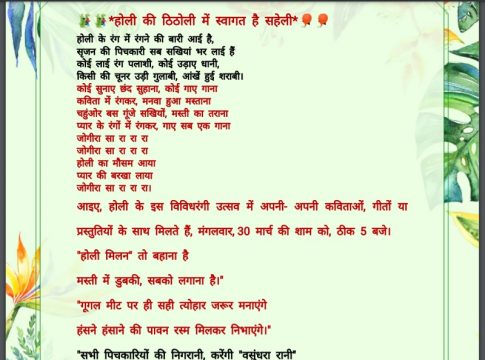 *होली की ठिठोली में स्वागत है सहेली*
होली के रंग में रंगने की बारी आई है,
सृजन की पिचकारी सब सखियां भर लाई हैं
कोई लाई रंग पलाशी, कोई उड़ाए धानी,
किसी की चूनर उड़ी गुलाबी, आंखें हुई शराबी।
कोई सुनाए छंद सुहाना, कोई गाए गाना
कविता में रंगकर, मनवा हुआ मस्ताना
चहुंओर बस गूंजे सखियों, मस्ती का तराना
प्यार के रंगों में रंगकर, गाए सब एक गाना
जोगीरा सा रा रा रा
जोगीरा सा रा रा रा
होली का मौसम आया
प्यार की बरखा लाया
जोगीरा सा रा रा रा।
आइए, होली के इस विविधरंगी उत्सव में अपनी- अपनी कविताओं, गीतों या
प्रस्तुतियों के साथ मिलते हैं, मंगलवार, 30 मार्च की शाम को, ठीक 5 बजे।
"होली मिलन" तो बहाना है
मस्ती में डुबकी, सबको लगाना है।"
"गूगल मीट पर ही सही त्योहार जरूर मनाएंगे
हंसने हंसाने की पावन रस्म मिलकर निभाएंगे।"
"सभी पिचकारियों की निगरानी, करेंगी "वसुंधरा रानी"